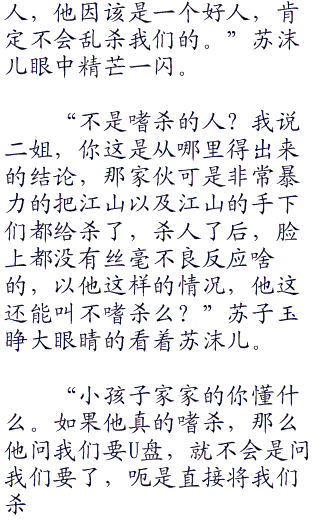 人，他因该是一个好人，肯
定不会乱杀我们的。”苏沫
儿眼中精芒一闪。
“不是嗜杀的人？我说
二姐，你这是从哪里得出来
的结论，那家伙可是非常暴
力的把江山以及江山的手下
们都给杀了，杀人了后，脸
上都没有丝毫不良反应啥
的，以他这样的情况，他这
还能叫不嗜杀么？”苏子玉
睁大眼睛的看着苏沫儿。
“小孩子家家的你懂什
么。如果他真的嗜杀，那么
他问我们要U盘，就不会是问
我们要了，呃是直接将我们
杀